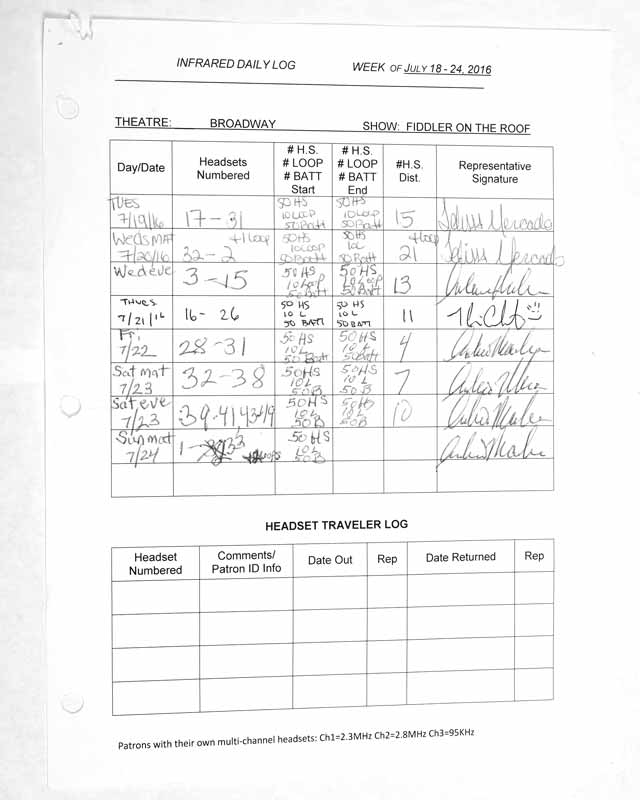 INFRARED DAILY LOG WEEK OF JULY 18 - 24, 2016
THEATRE: BROADWAY SHOW: FIDDLER ON THE ROOF
Day/Date Headsets Numbered # H.S. # LOOP # BATT Start # H.S. # LOOP # BATT End #H.S. Dist. Representative Signature
TUES 7/19/16 17-31 50 HS 10 LOOP 50 BATT 50 HS 10 LOOP 50 BATT 15 Mercado
Weds MAT 7/20/16 32-2 +1 Loop 50 HS 10 LOOP 50 BATT 50 HS 10L 50 Batt +1 Loop 21 Mercado
Wed eve 3-15 50 HS 10 Loop 50 Batt 50 HS 10 Loop 50 Batt 13
THURS 7/21/16 16-26 50 HS 10 L 50 BATT 50 HS 10 L 50 BATT 11
Fri 7/22 28-31 50 HS 10 L 50 Batt 50 HS 10 L 50 Batt 4
Sat mat 7/23 32-38 50 HS 10 L 50 B 50 HS 10 L 50 B 7
Sat eve 7/23 39-41, 50 HS 10 L 50 B 50 HS 10 L 50 B 10
Sun mat 7/24 1- 33 Loops 50 HS 10 L 50 B
HEADSET TRAVELER LOG
Headset Numbered Comments/ Patron ID Info Date Out Rep Date Returned Rep
Patrons with their own multi-channel headsets: Ch1=2.3MHz Ch2=2.8MHz Ch3=95KHz